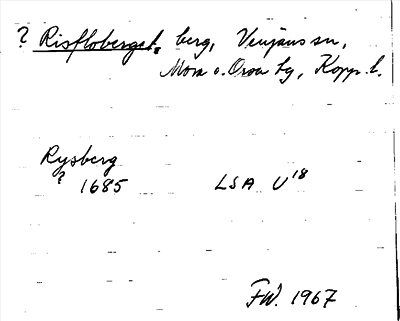 ? Risfloberget, berg, Venjans sn,
Mora o. Orsa tg, Kopp. l.
Rysberg
? 1685 LSA U18
FW. 1967